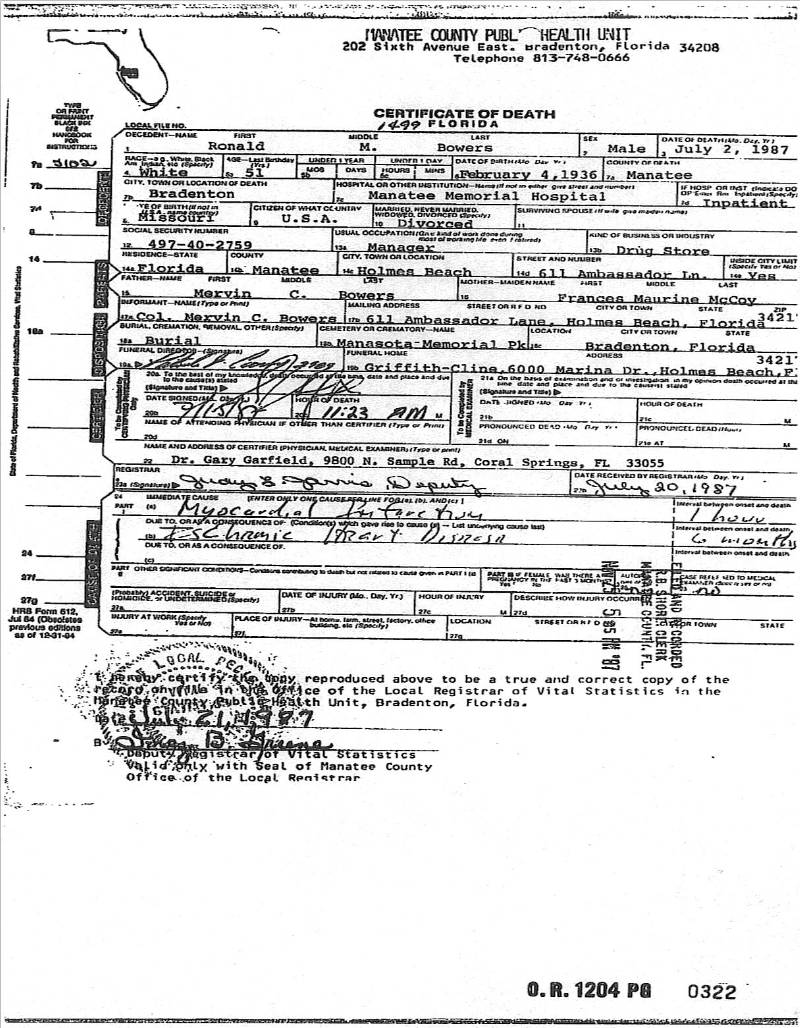 MANATEE COUNTY PUBL HEALTH UNIT
202 Sixth Avenue East. Bradenton, Florida 34208
Telephone 813-748-0666
TYPE OR PRINT PERMANENT BLACK INK SEE HANDBOOK FOR INSTRUCTIONS
CERTIFICATE OF DEATH
LOCAL FILE NO. 1499 FLORIDA
DECEDENT—NAME FIRST MIDDLE LAST SEX DATE OF DEATH (Mo. Day, Yr.)
1 Ronald M. Bowers 2 Male 3 July 2, 1987
RACE—e.g. White, Black, Am. Indian, etc (Specify) AGE—Last Birthday (Yrs) UNDER 1 YEAR UNDER 1 DAY DATE OF BIRTH (Mo Day Yr) COUNTY OF DEATH
MOS DAYS HOURS MINS
7a 3102 4 White 5a 51 5b 5c 6 February 4, 1936 7a Manatee
CITY, TOWN OR LOCATION OF DEATH HOSPITAL OR OTHER INSTITUTION—Name (If not in either give street and number) IF HOSP OR INST
7b 7b Bradenton 7c Manatee Memorial Hospital 7d Inpatient
CITIZEN OF WHAT COUNTRY MARRIED, NEVER MARRIED, WIDOWED, DIVORCED (Specify) SURVIVING SPOUSE (If wife give maiden name)
7d Missouri 9 U.S.A. 10 Divorced 11
8 SOCIAL SECURITY NUMBER USUAL OCCUPATION (Give kind of work done during most of working life even if retired) KIND OF BUSINESS OR INDUSTRY
12. 497-40-2759 13a Manager 13b Drug Store
14 RESIDENCE—STATE COUNTY CITY, TOWN OR LOCATION STREET AND NUMBER INSIDE CITY LIMITS (Specify Yes or No)
14a Florida 14b Manatee 14c Holmes Beach 14d 611 Ambassador Ln. 14e Yes
FATHER—NAME FIRST MIDDLE LAST MOTHER—MAIDEN NAME FIRST MIDDLE LAST
15 Mervin C. Bowers 16 Frances Maurine McCoy
INFORMANT—NAME (Type or Print) MAILING ADDRESS STREET OR R F D NO CITY OR TOWN STATE ZIP
17a Col. Mervin C. Bowers 17b 611 Ambassador Lane, Holmes Beach, Florida 3421
18a BURIAL, CREMATION, REMOVAL, OTHER (Specify) CEMETERY OR CREMATORY—NAME LOCATION CITY OR TOWN STATE
18a Burial 18b Manasota Memorial Pk Bradenton, Florida
FUNERAL DIRECTOR—(Signature) FUNERAL HOME ADDRESS 3421
19a 2109 Griffith-Cline, 6000 Marina Dr., Holmes Beach, F
20a. To the best of my knowledge death occurred at the time, date and place and due to the cause(s) stated
(Signature and Title)
21a On the basis of examination and/or investigation in my opinion death occurred at the time date and place and due to the cause(s) stated
(Signature and Title)
DATE SIGNED (Mo. Day, Yr.) HOUR OF DEATH DATE SIGNED (Mo Day Yr) HOUR OF DEATH
20b 20c 11:23 AM M 21b 21c M
NAME OF ATTENDING PHYSICIAN IF OTHER THAN CERTIFIER (Type or Print) PRONOUNCED DEAD (Mo Day, Yr.) PRONOUNCED DEAD (Hour)
20d 21d ON 21e AT M
NAME AND ADDRESS OF CERTIFIER (PHYSICIAN, MEDICAL EXAMINER) (Type or print)
22 Dr. Gary Garfield, 9800 N. Sample Rd, Coral Springs, FL 33055
REGISTRAR DATE RECEIVED BY REGISTRAR (Mo. Day, Yr.)
23a (Signature) Deputy July 20, 1987
24 IMMEDIATE CAUSE [ENTER ONLY ONE CAUSE PER LINE FOR (a), (b), AND (c)] Interval between onset and death
PART I (a) Myocardial Infarction 1 hour
DUE TO, OR AS A CONSEQUENCE OF. (Condition(s) which gave rise to cause (a) — List underlying cause last) Interval between onset and death
(b)
24 DUE TO, OR AS A CONSEQUENCE OF. Interval between onset and death
(c)
27f PART II OTHER SIGNIFICANT CONDITIONS—Conditions contributing to death but not related to cause given in PART I (a)
27g (Probably) ACCIDENT, SUICIDE or HOMICIDE, or UNDETERMINED (Specify) DATE OF INJURY (Mo., Day, Yr.) HOUR OF INJURY DESCRIBE HOW INJURY OCCURRED
27a 27b 27c M 27d
INJURY AT WORK (Specify Yes or No) PLACE OF INJURY—At home, farm, street, factory, office building, etc (Specify) LOCATION STREET OR R F D CITY OR TOWN STATE
27e 27f. 27g
HRS Form 512, Jul 84 (Obsoletes previous editions as of 12-31-84
FILED AND RECORDED
R.B. SHORE, CLERK
MANATEE COUNTY, FL.
I hereby certify the copy reproduced above to be a true and correct copy of the
record on file in the Office of the Local Registrar of Vital Statistics in the
Manatee County Public Health Unit, Bradenton, Florida.
Date July 21, 1987
Deputy Registrar of Vital Statistics
Valid only with Seal of Manatee County
Office of the Local Registrar
O.R. 1204 PG 0322